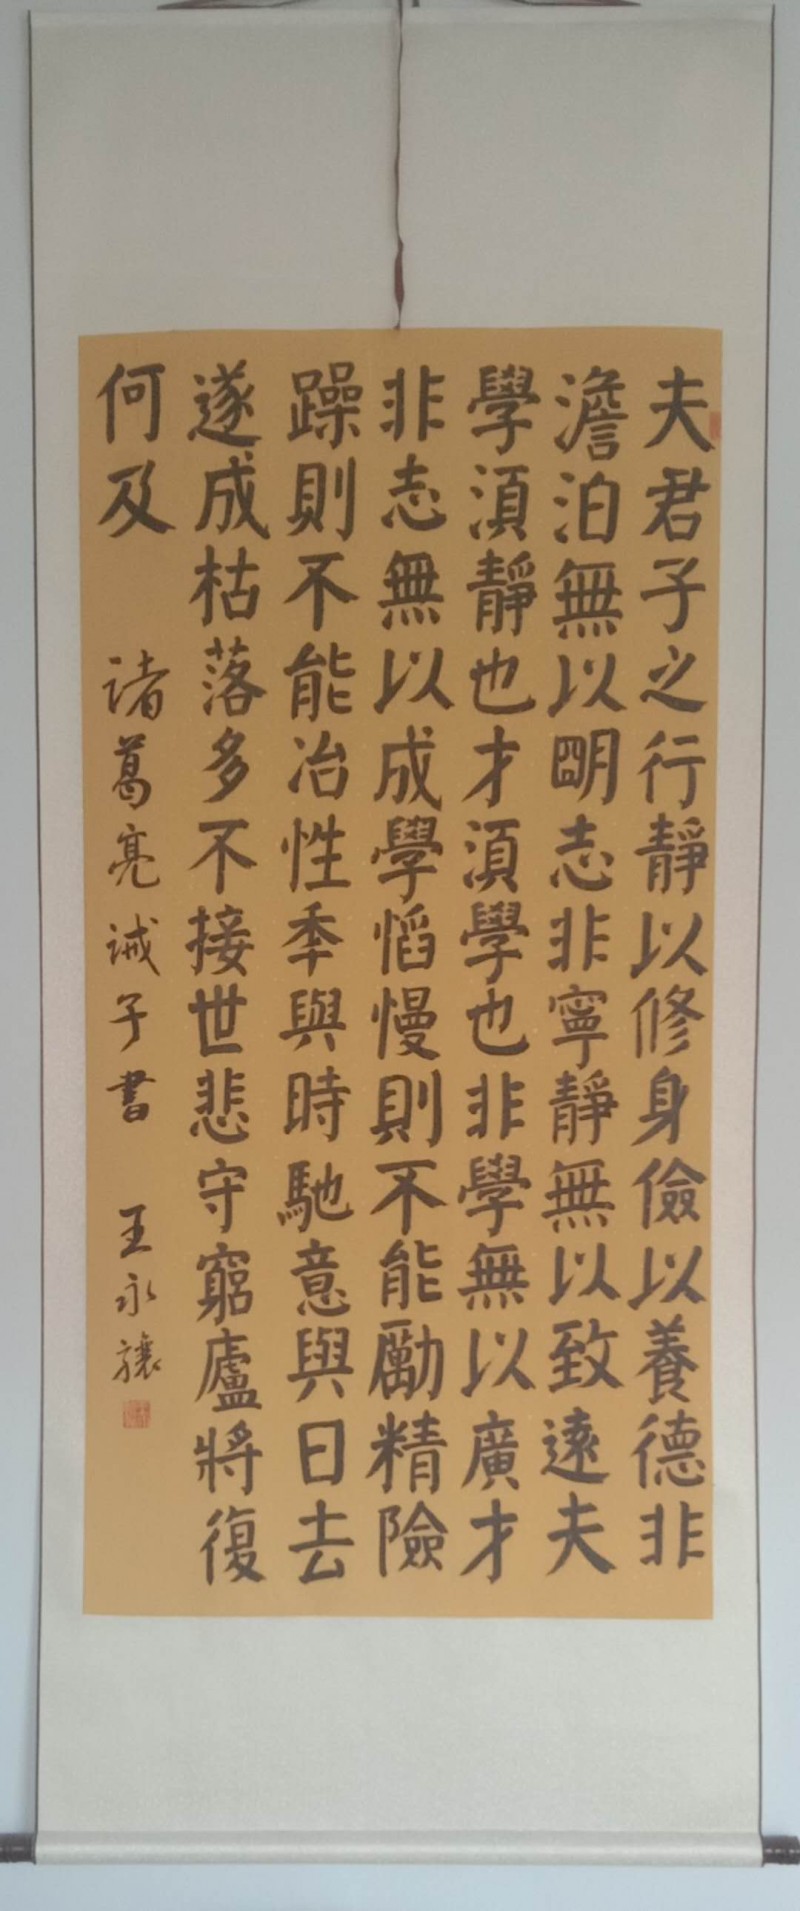 夫君子之行靜以修身儉以養德非
澹泊無以明志非寧靜無以致遠夫
學湏靜也才湏學也非學無以廣才
非志無以成學慆慢則不能勵精險
躁則不能冶性年與時馳意與日去
遂成枯落多不接世悲守窮廬將復
何及 诸葛亮诫子書 王永驤